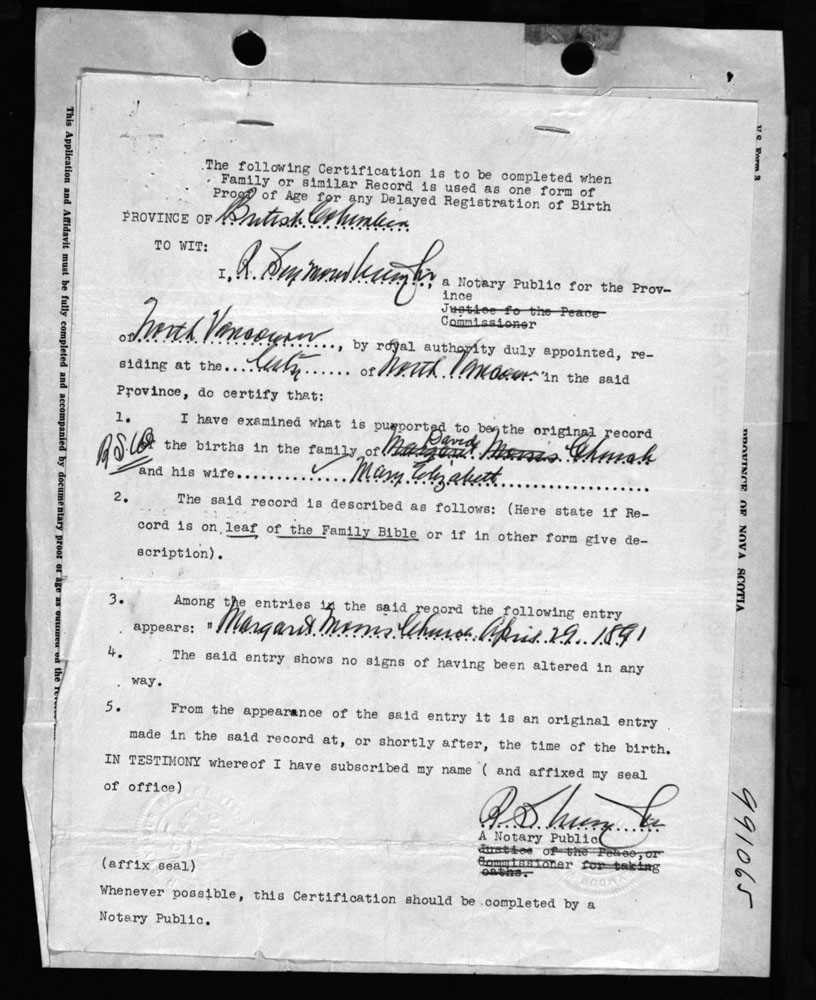 The following Certification is to be completed when
Family or similar Record is used as one form of
Proof of Age for any Delayed Registration of Birth
PROVINCE OF British Columbia
TO WIT:
I, R. Seymour, a Notary Public for the Prov-
ince
Justice fo the Peace
Commissioner
of North Vancouver, by royal authority duly appointed, re-
siding at the... City ...... of North Vancouver in the said
Province, do certify that:
1. I have examined what is purported to be the original record
R.S. the births in the family of Margaret David Morris Church
and his wife............ Mary Elizabeth....................
2. The said record is described as follows: (Here state if Re-
cord is on leaf of the Family Bible or if in other form give de-
scription).
3. Among the entries in the said record the following entry
appears: " Margaret Morris Church April 29. 1891
4. The said entry shows no signs of having been altered in any
way.
5. From the appearance of the said entry it is an original entry
made in the said record at, or shortly after, the time of the birth.
IN TESTIMONY whereof I have subscribed my name ( and affixed my seal
of office)
R S
A Notary Public
Justice of the Peace, or
Commissioner for taking
oaths.
(affix seal)
Whenever possible, this Certification should be completed by a
Notary Public.
This Application and Affidavit must be fully completed and accompanied by documentary proof of age as outlined on the
U.S. Form 3
PROVINCE OF NOVA SCOTIA
991065